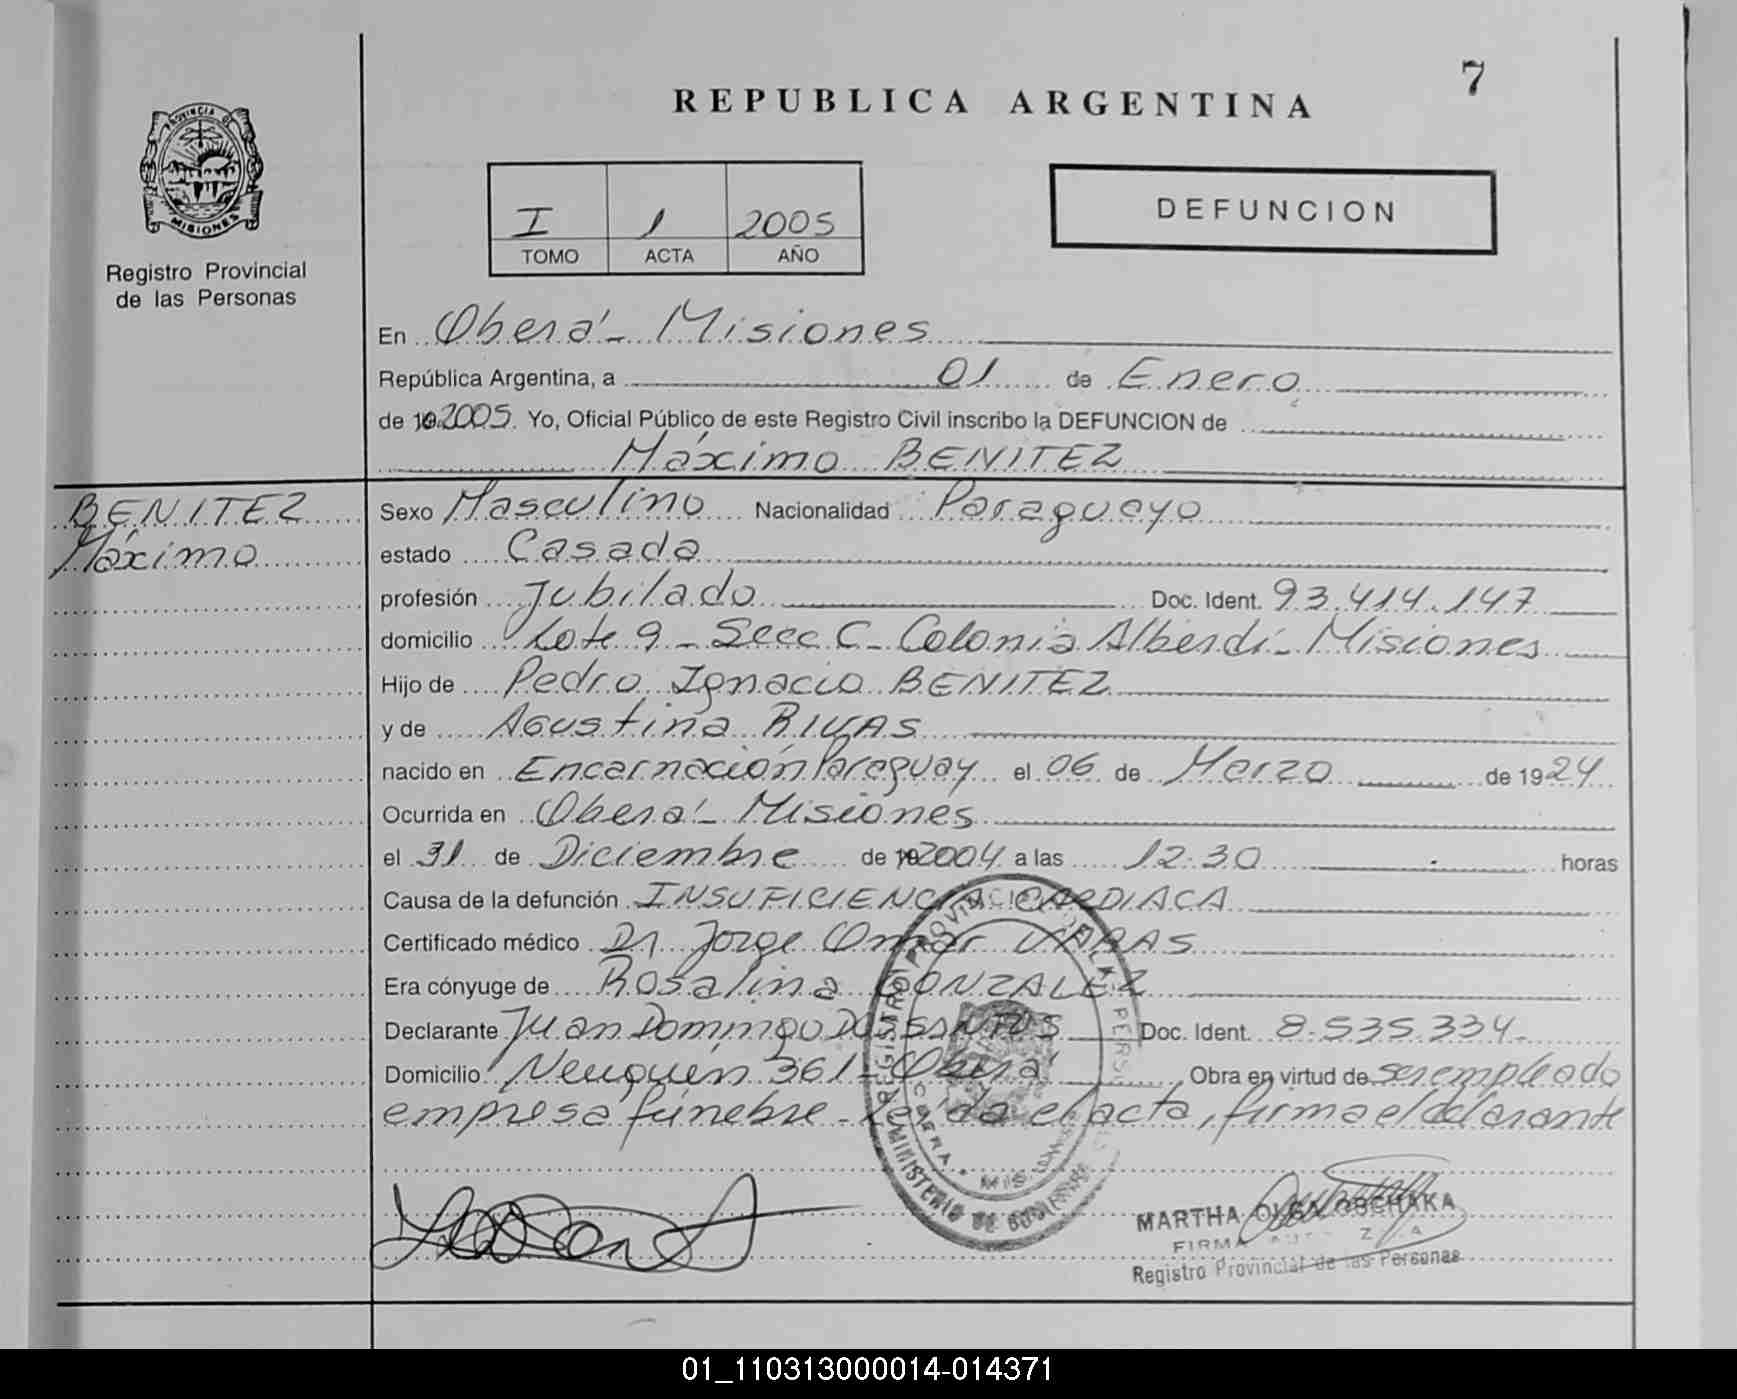 7
REPUBLICA ARGENTINA
PROVINCIA DE
MISIONES
Registro Provincial
de las Personas
I 1 2005
TOMO ACTA AÑO
DEFUNCION
En Oberá - Misiones
República Argentina, a 01 de Enero
de 2005. Yo, Oficial Público de este Registro Civil inscribo la DEFUNCION de
Máximo BENITEZ
BENITEZ
Máximo
Sexo Masculino Nacionalidad Paraguayo
estado Casada
profesión Jubilado Doc. Ident. 93.414.147
domicilio Lote 9 - Secc C - Colonia Alberdi - Misiones
Hijo de Pedro Ignacio BENITEZ
y de Agustina RIVAS
nacido en Encarnación Paraguay el 06 de Marzo de 1924
Ocurrida en Oberá - Misiones
el 31 de Diciembre de 2004 a las 12.30 horas
Causa de la defunción INSUFICIENCIA CARDIACA
Certificado médico Dr. Jorge Omar VARAS
Era cónyuge de Rosalina GONZALEZ
Declarante Juan Domingo DOS SANTOS Doc. Ident. 8.535.334-
Domicilio Neuquén 361 - Oberá Obra en virtud de ser empleado
empresa fúnebre - Leída el acta, firma el declarante
MARTHA OLGA
FIRMA
Registro Provincial de las Personas
01_110313000014-014371